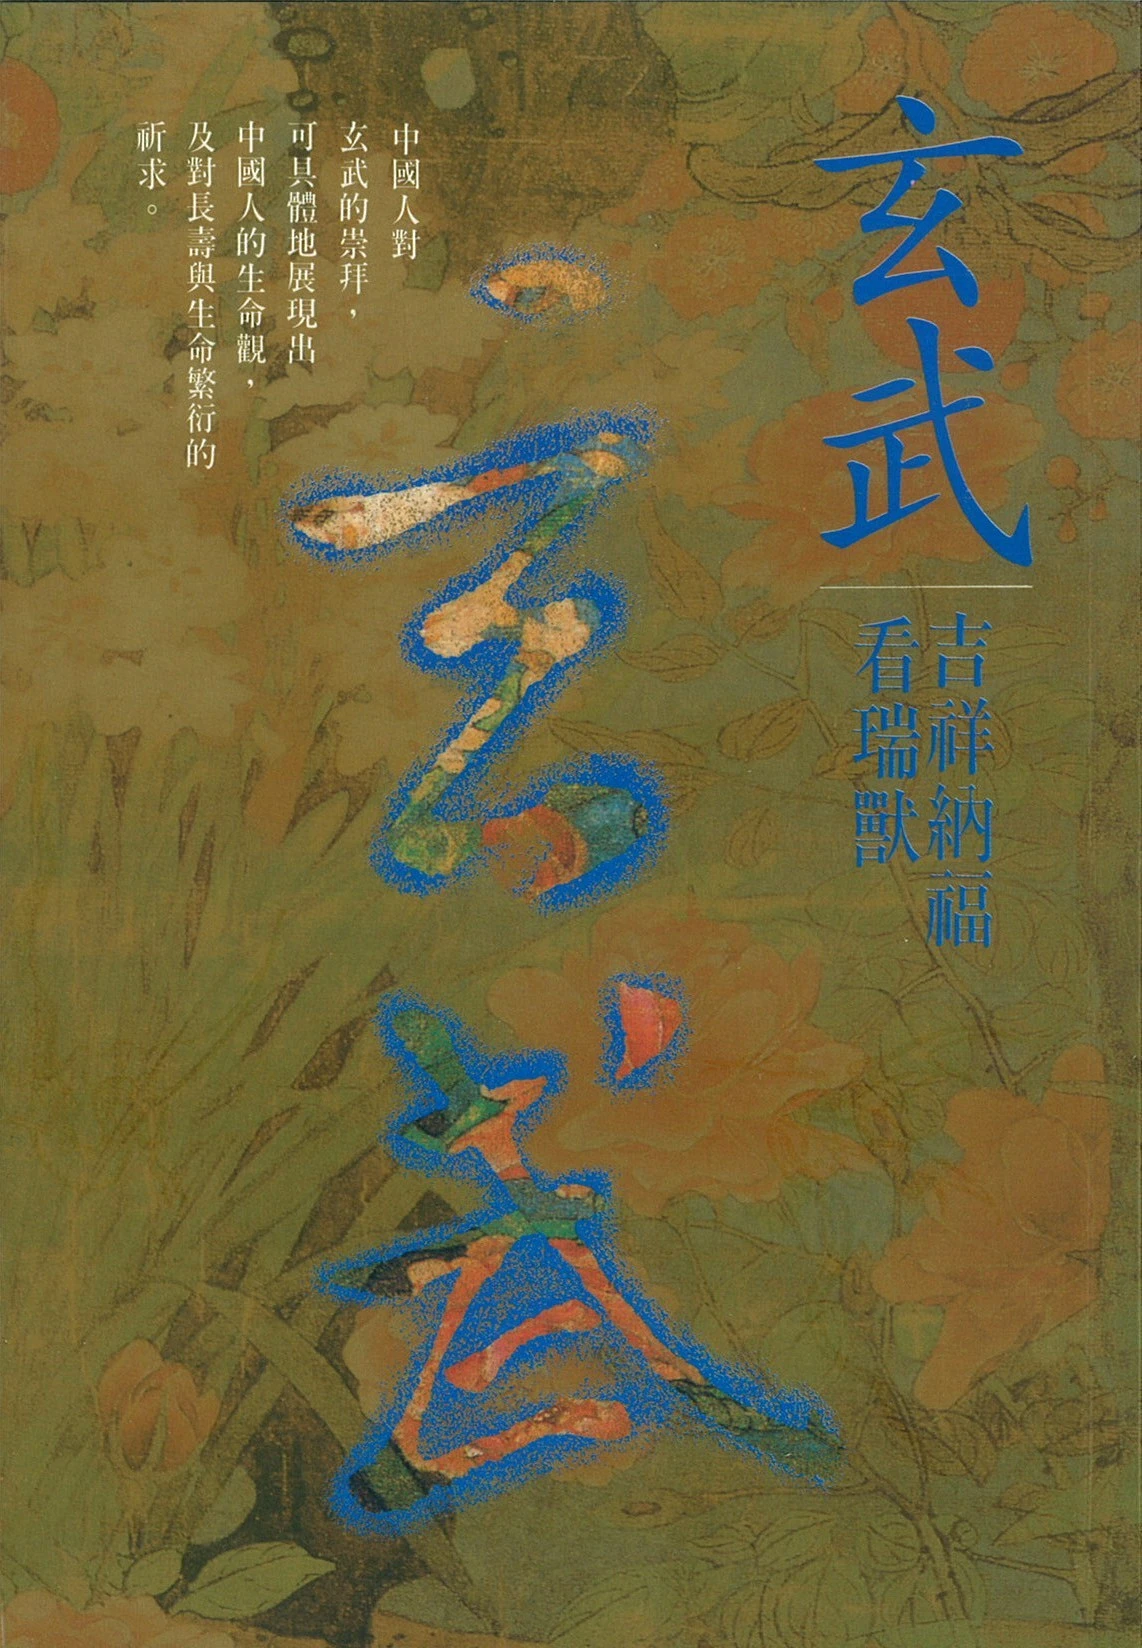 玄武
吉祥納福
看瑞獸
中國人對
玄武的崇拜，
可具體地展現出
中國人的生命觀，
及對長壽與生命繁衍的
祈求。
玄武